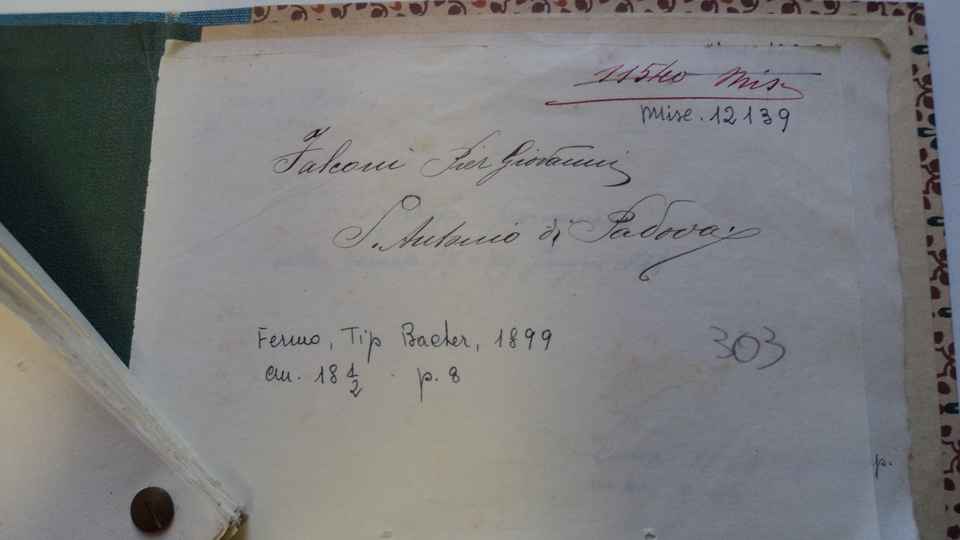 11540 Mis
Misc. 12139
Falconi Pier Giovanni
S. Antonio di Padova.
Fermo, Tip Bacher, 1899
303
cm. 18 1/2 . p. 8
p.